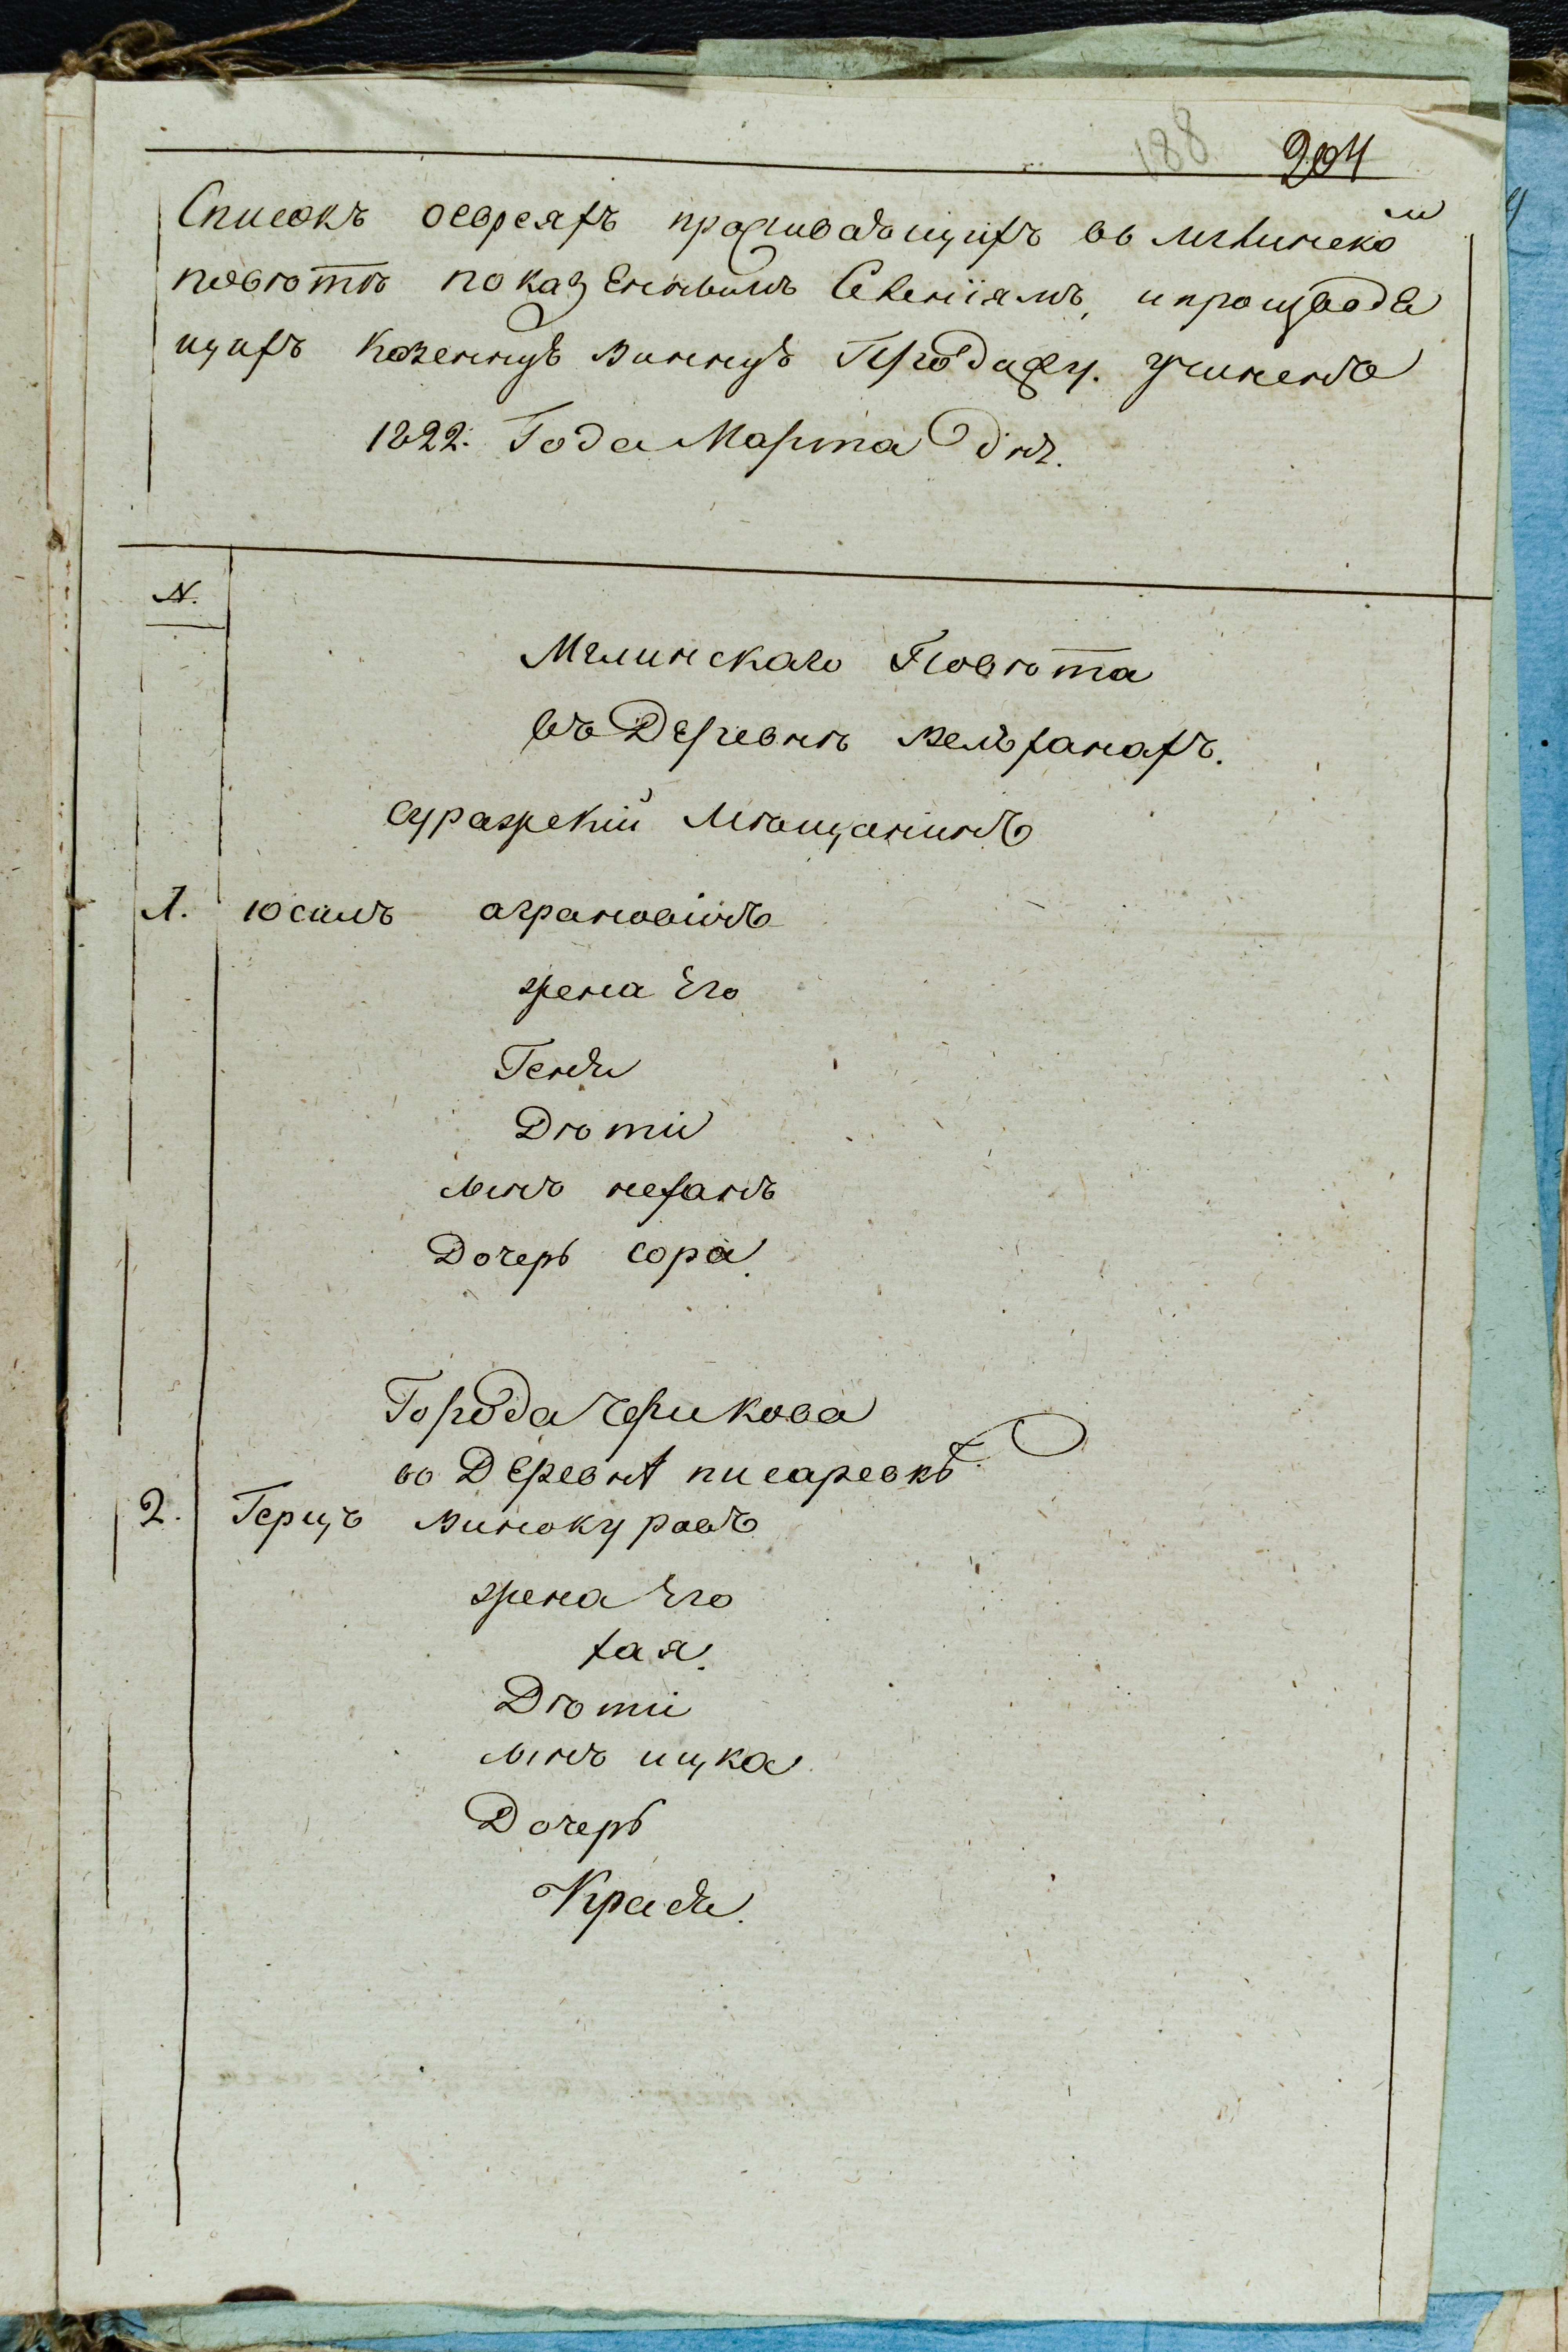 188 204
Списокъ оевреяхъ проживающихъ въ мглинско м
повѣтѣ показеннымъ Селеніямъ, и производя
щихъ Казенную винную Продажу. учиненъ
1822. Года Марта дня.
N.
Мглинскаго Повѣта
въ Деревнѣ вельжанахъ.
суражскій мѣщанинъ
1. юсимъ аграновичъ
жена Его
Генди
Дѣти
сынъ неханъ
Дочерь сора.
Города Черикова
во Деревнѣ писаревкѣ
2. Герцъ винокуровъ
жена Его
хая.
Дѣти
сынъ ицка
Дочерь
Крейди.